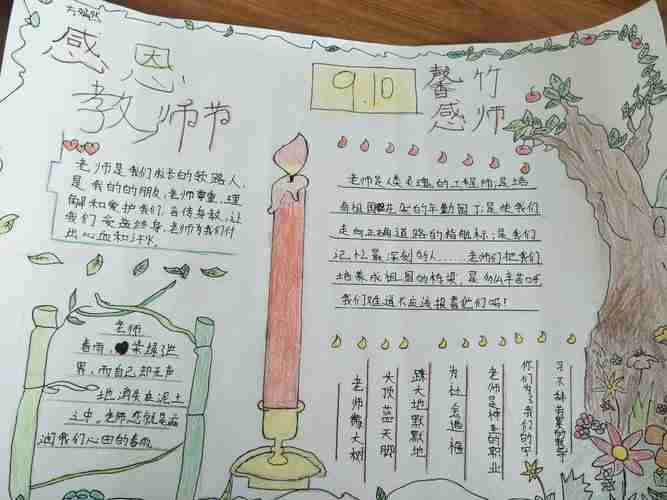 感恩
教师节
9.10
馨竹
感师
老师是我们成长的领路人,
是我的的朋友,老师尊重、理
解和爱护我们,言传身教,让
我们受益终身,老师为我们付
出心血和汗水。
老师是人类灵魂的工程师;是培
育祖国花朵的辛勤园丁;是使我们
走向正确道路的指航标;是我们
记忆最深刻的人……老师们把我们
培养成祖国的栋梁,是多么辛苦呀
我们难道不应该报答他们吗!
老师
春雨,柴绿进
界,而自己却无声
地消失在泥土
之中。老师您就是滋
润我们心田的春雨
老师像大树
头顶蓝天脚
踩大地默默地
为社会造福
老师是神圣的职业
你们为了我们的学